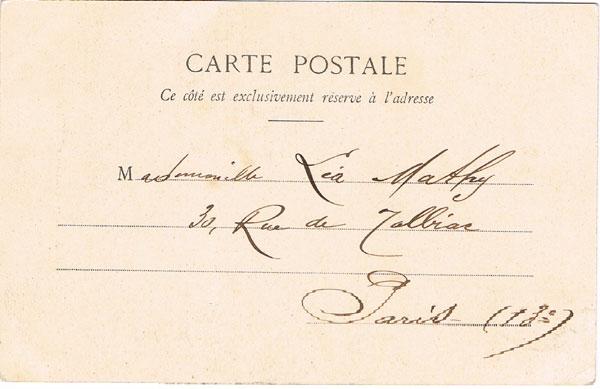 CARTE POSTALE
Ce côté est exclusivement réservé à l'adresse
Mademoiselle Léa Mathy
30, Rue de Tolbiac
Paris (13e)